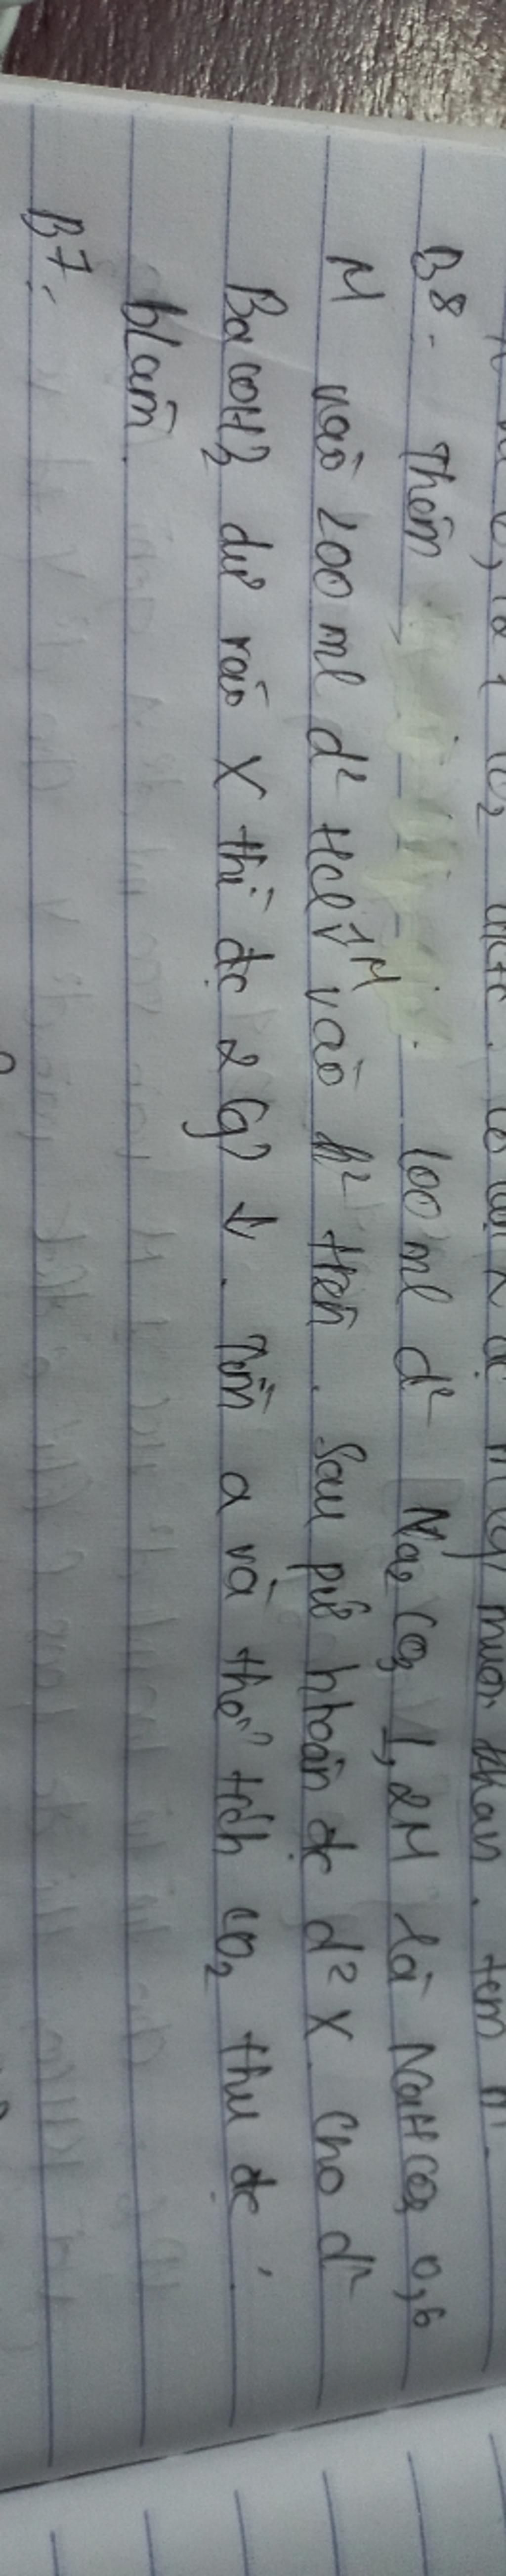 B8. Thêm 100 ml d² Na2CO3 1,2M là NaHCO3 0,6
M vào 200 ml d² HCl 1M vào h² trên. Sau pứ hhoàn đc d² X. Cho d²
Ba(OH)2 dư vào X thì đc a (g) ↓. Tìm a và thể tích CO2 thu đc.
blàm.
B7.